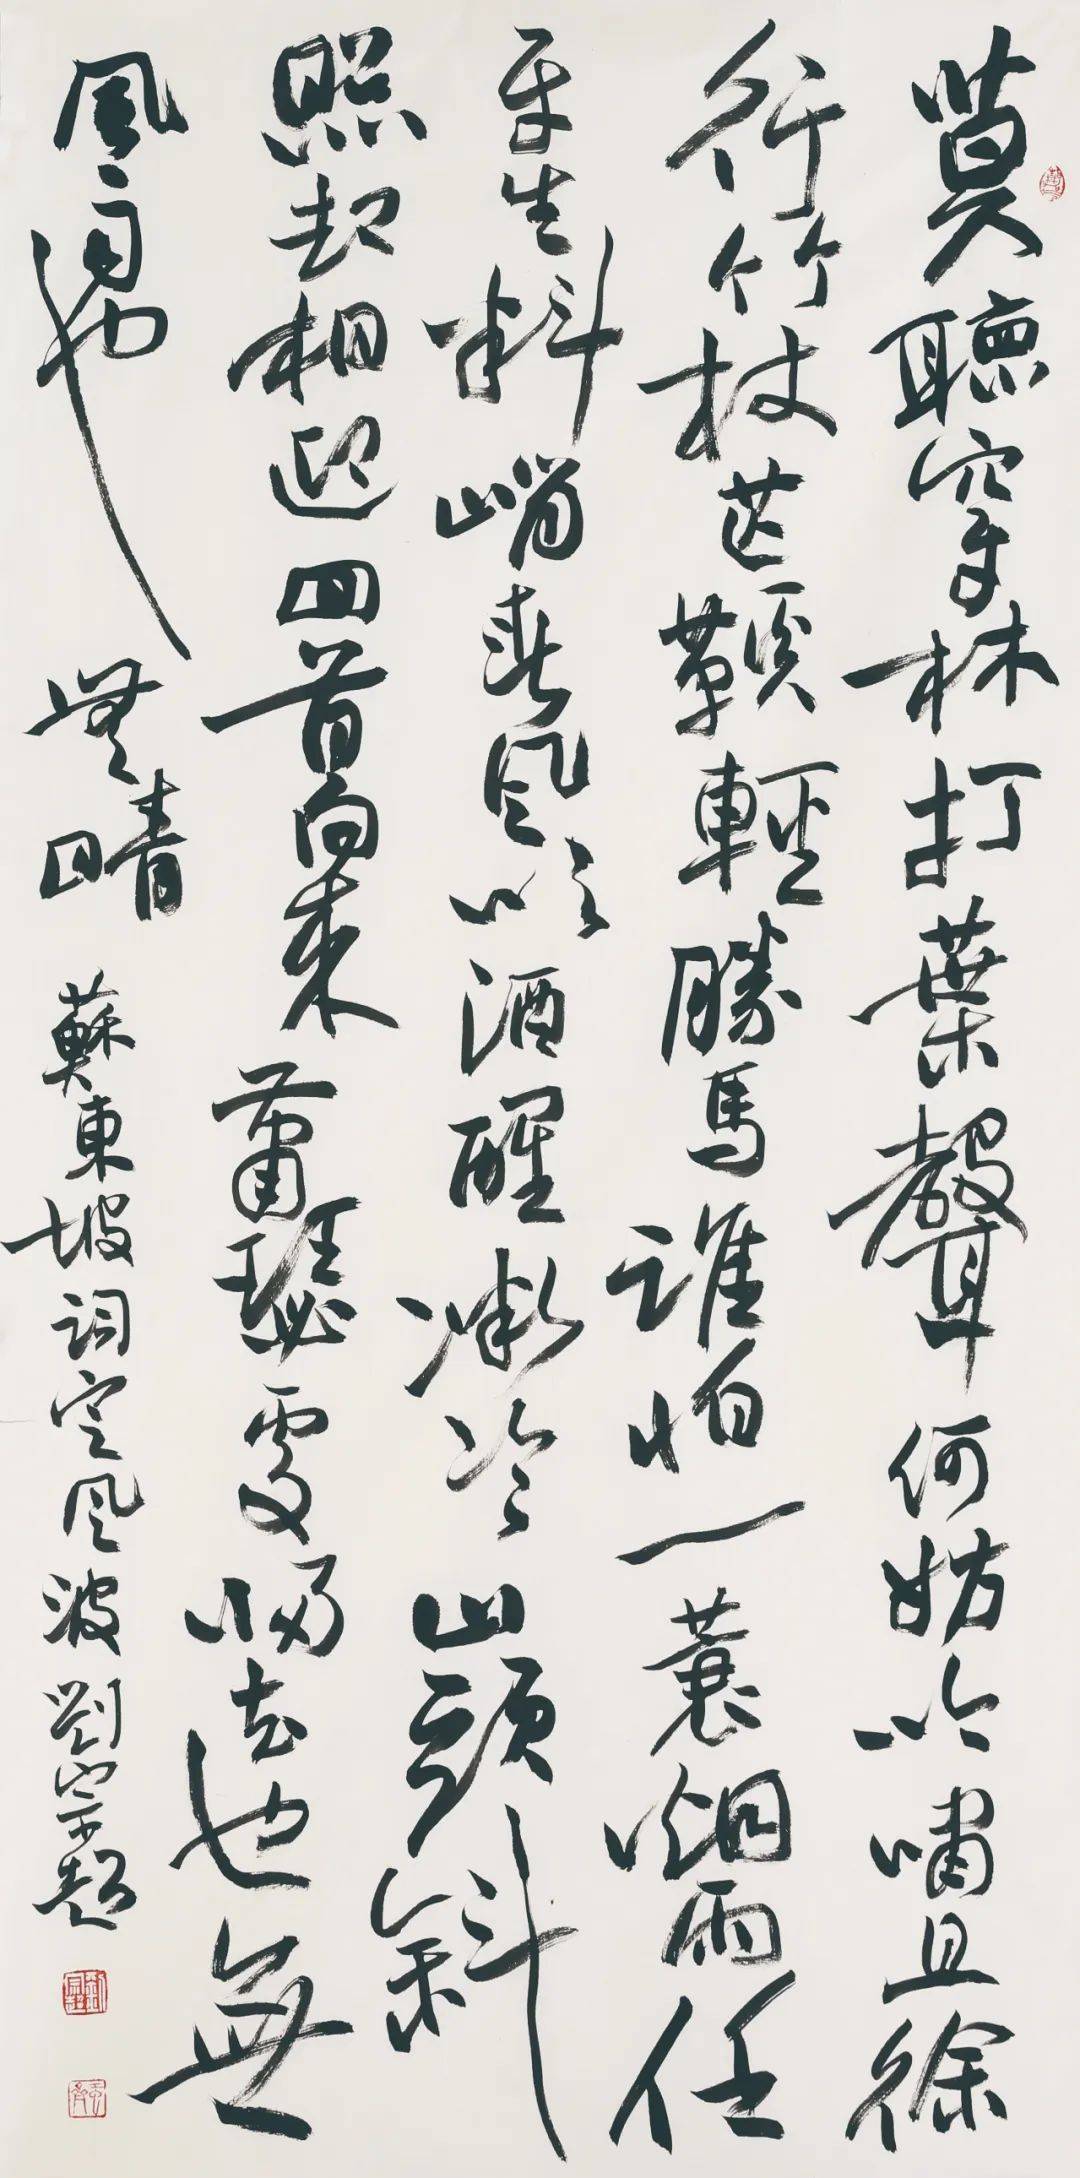 莫聽穿林打葉聲何妨吟嘯且徐
行竹杖芒鞵輕勝馬誰怕一蓑烟雨任
平生料峭春風吹酒醒微冷山頭斜
照却相迎回首向来蕭瑟處歸去也無
風雨也無晴 蘇東坡詞定風波劉宗超